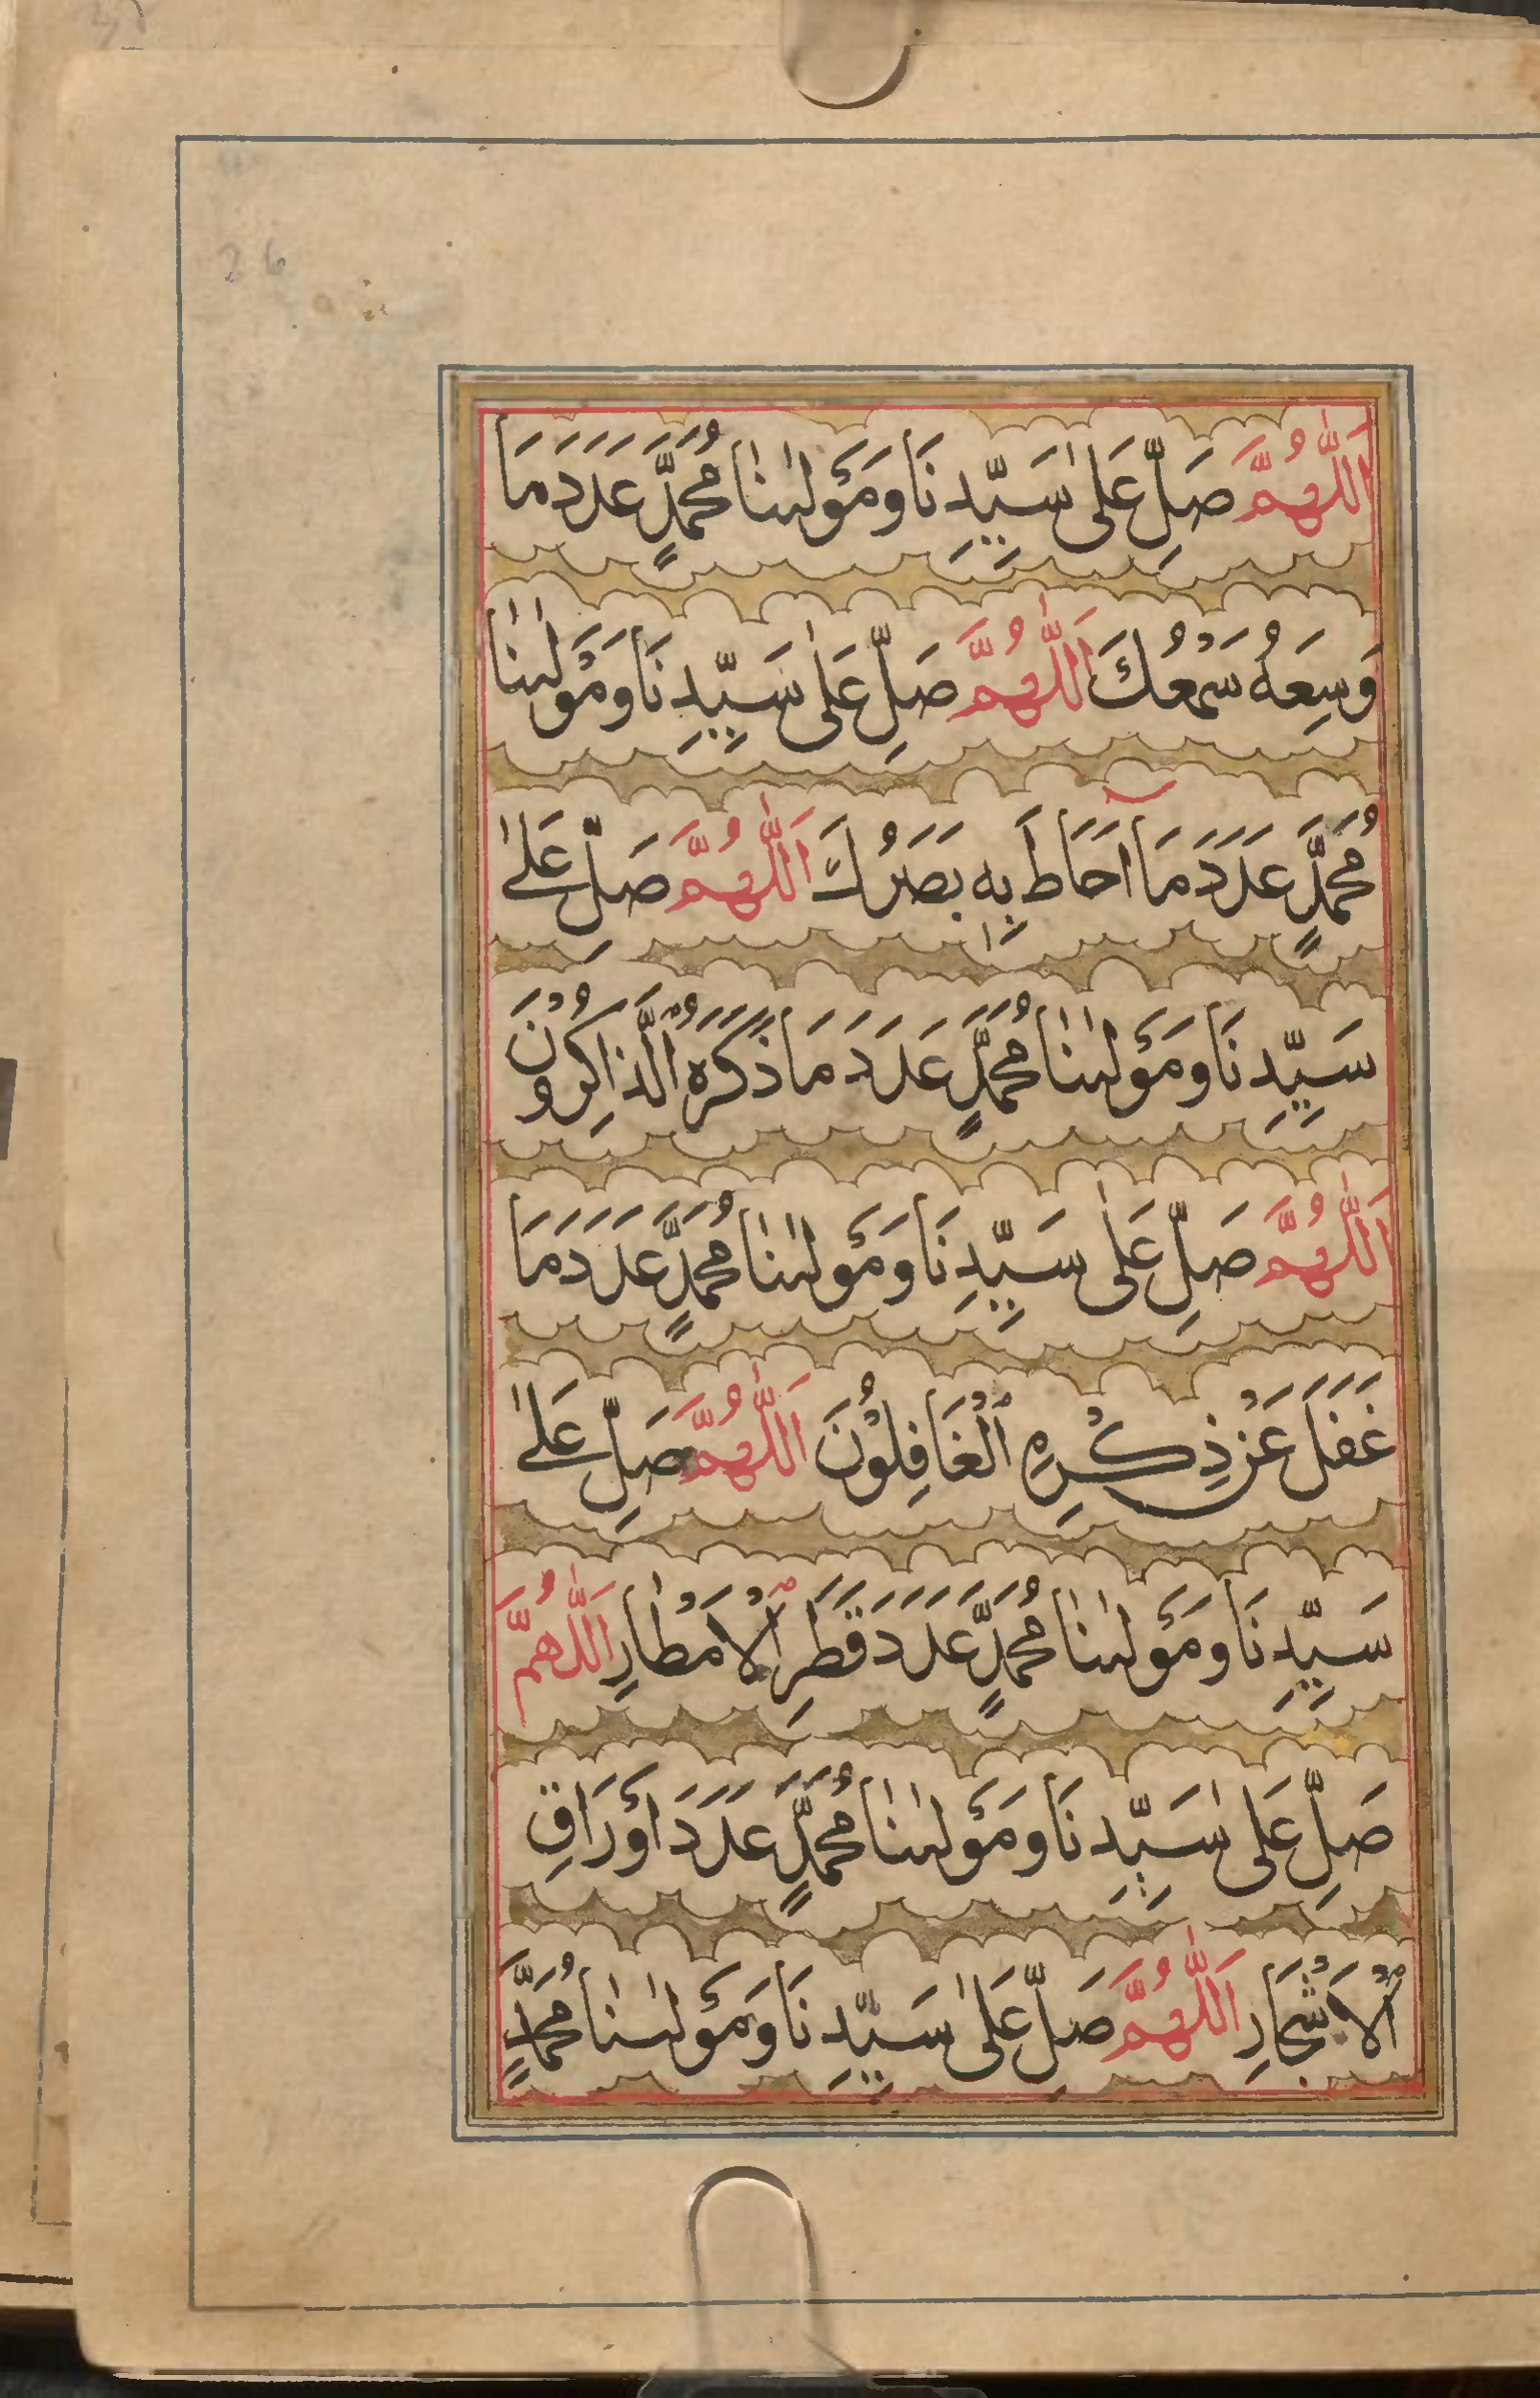 اَللّٰهُمَّ صَلِّ عَلٰى سَيِّدِنَا وَمَوْلٰىنَا مُحَمَّدٍ عَدَدَ مَا
وَسِعَهُ سَمْعُكَ اَللّٰهُمَّ صَلِّ عَلٰى سَيِّدِنَا وَمَوْلٰىنَا
مُحَمَّدٍ عَدَدَ مَا اَحَاطَ بِهٖ بَصَرُكَ اَللّٰهُمَّ صَلِّ عَلٰى
سَيِّدِنَا وَمَوْلٰىنَا مُحَمَّدٍ عَدَدَ مَا ذَكَرَهُ الَّذَاكِرُوْنَ
اَللّٰهُمَّ صَلِّ عَلٰى سَيِّدِنَا وَمَوْلٰىنَا مُحَمَّدٍ عَدَدَ مَا
غَفَلَ عَنْ ذِكْرِهِ الْغَافِلُوْنَ اَللّٰهُمَّ صَلِّ عَلٰى
سَيِّدِنَا وَمَوْلٰىنَا مُحَمَّدٍ عَدَدَ قَطَرِ الْاَمْطَارِ اَللّٰهُمَّ
صَلِّ عَلٰى سَيِّدِنَا وَمَوْلٰىنَا مُحَمَّدٍ عَدَدَ اَوْرَاقِ
الْاَشْجَارِ اَللّٰهُمَّ صَلِّ عَلٰى سَيِّدِنَا وَمَوْلٰىنَا مُحَمَّدٍ
26